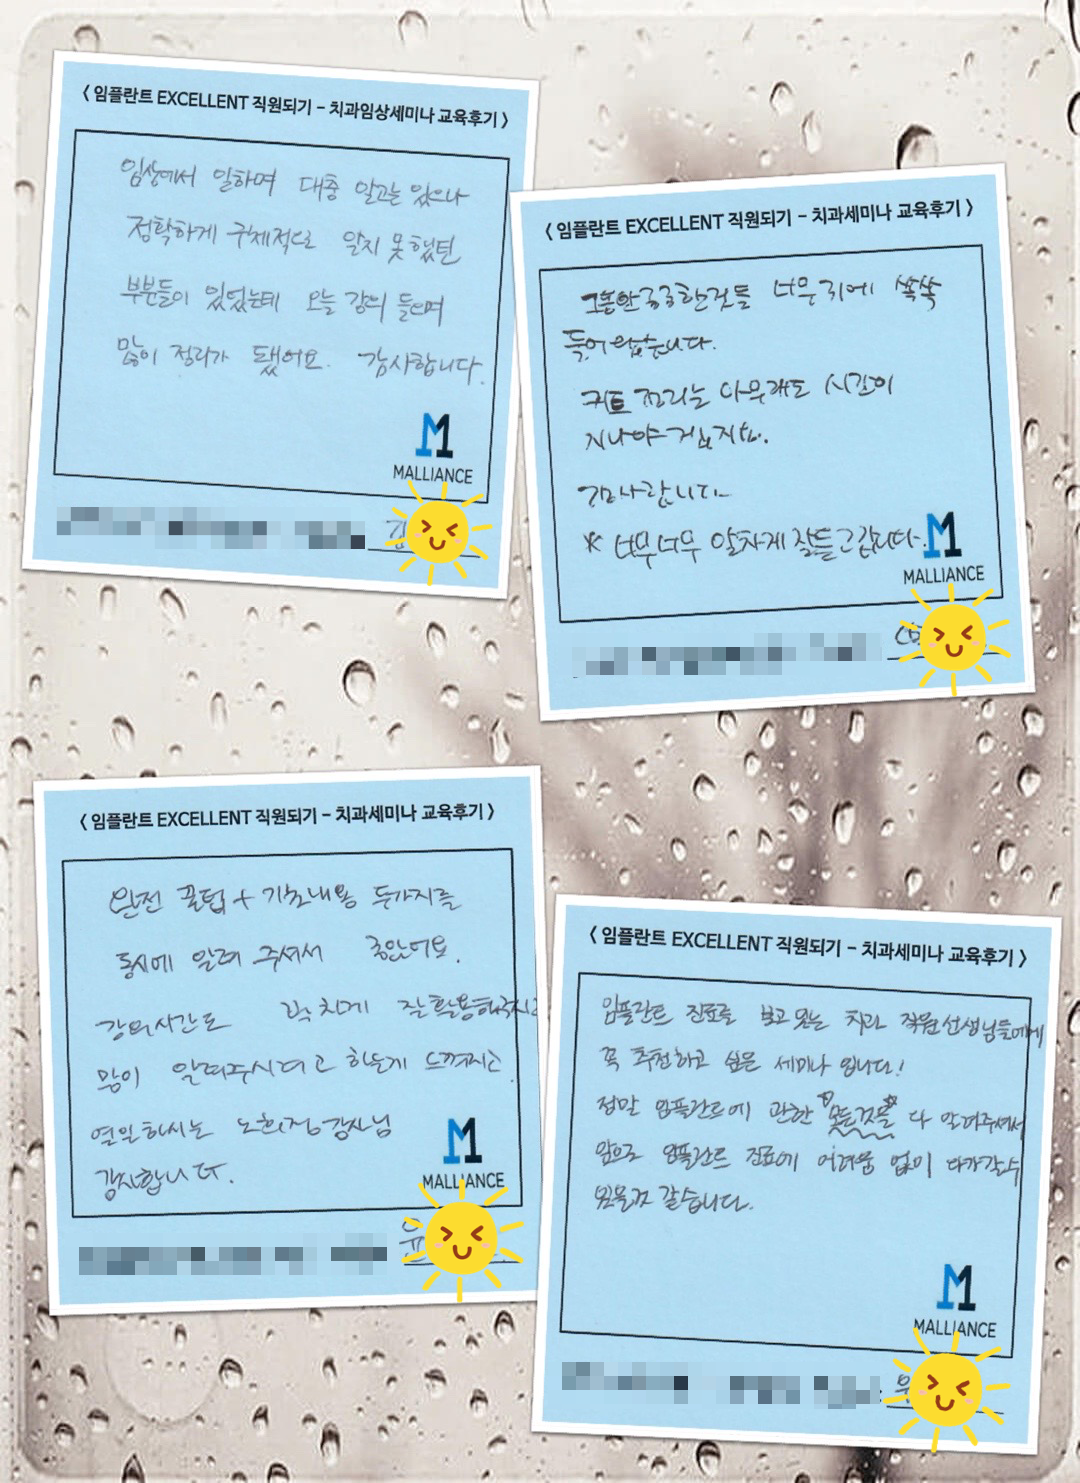 < 임플란트 EXCELLENT 직원되기 - 치과임상세미나 교육후기 >
임상에서 일하며 대충 알고는 있으나
정확하게 구체적으로 알지 못했던
부분들이 있었는데 오늘 강의 들으며
많이 정리가 됐어요. 감사합니다.
MALLIANCE
김
< 임플란트 EXCELLENT 직원되기 - 치과세미나 교육후기 >
그동안 궁금한것들 너무 귀에 쏙쏙
들어왔습니다.
키트 정리는 아무래도 시간이
지나야겠지요.
감사합니다
* 너무너무 알차게 잘듣고갑니다.
MALLIANCE
< 임플란트 EXCELLENT 직원되기 - 치과세미나 교육후기 >
완전 꿀팁 + 기초내용 두가지를
동시에 알려 주셔서 좋았어요.
강의시간도 알차게 잘활용해주시고
많이 알려주시려고 하는게 느껴지는
열일하시는 노희정강사님
감사합니다.
MALLIANCE
유
< 임플란트 EXCELLENT 직원되기 - 치과세미나 교육후기 >
임플란트 진료를 보고 있는 치과 직원선생님들에게
꼭 추천하고 싶은 세미나 입니다!
정말 임플란트에 관한 "모든것을" 다 알려주셔서
앞으로 임플란트 진료에 어려움 없이 다가갈수
있을것 같습니다.
MALLIANCE